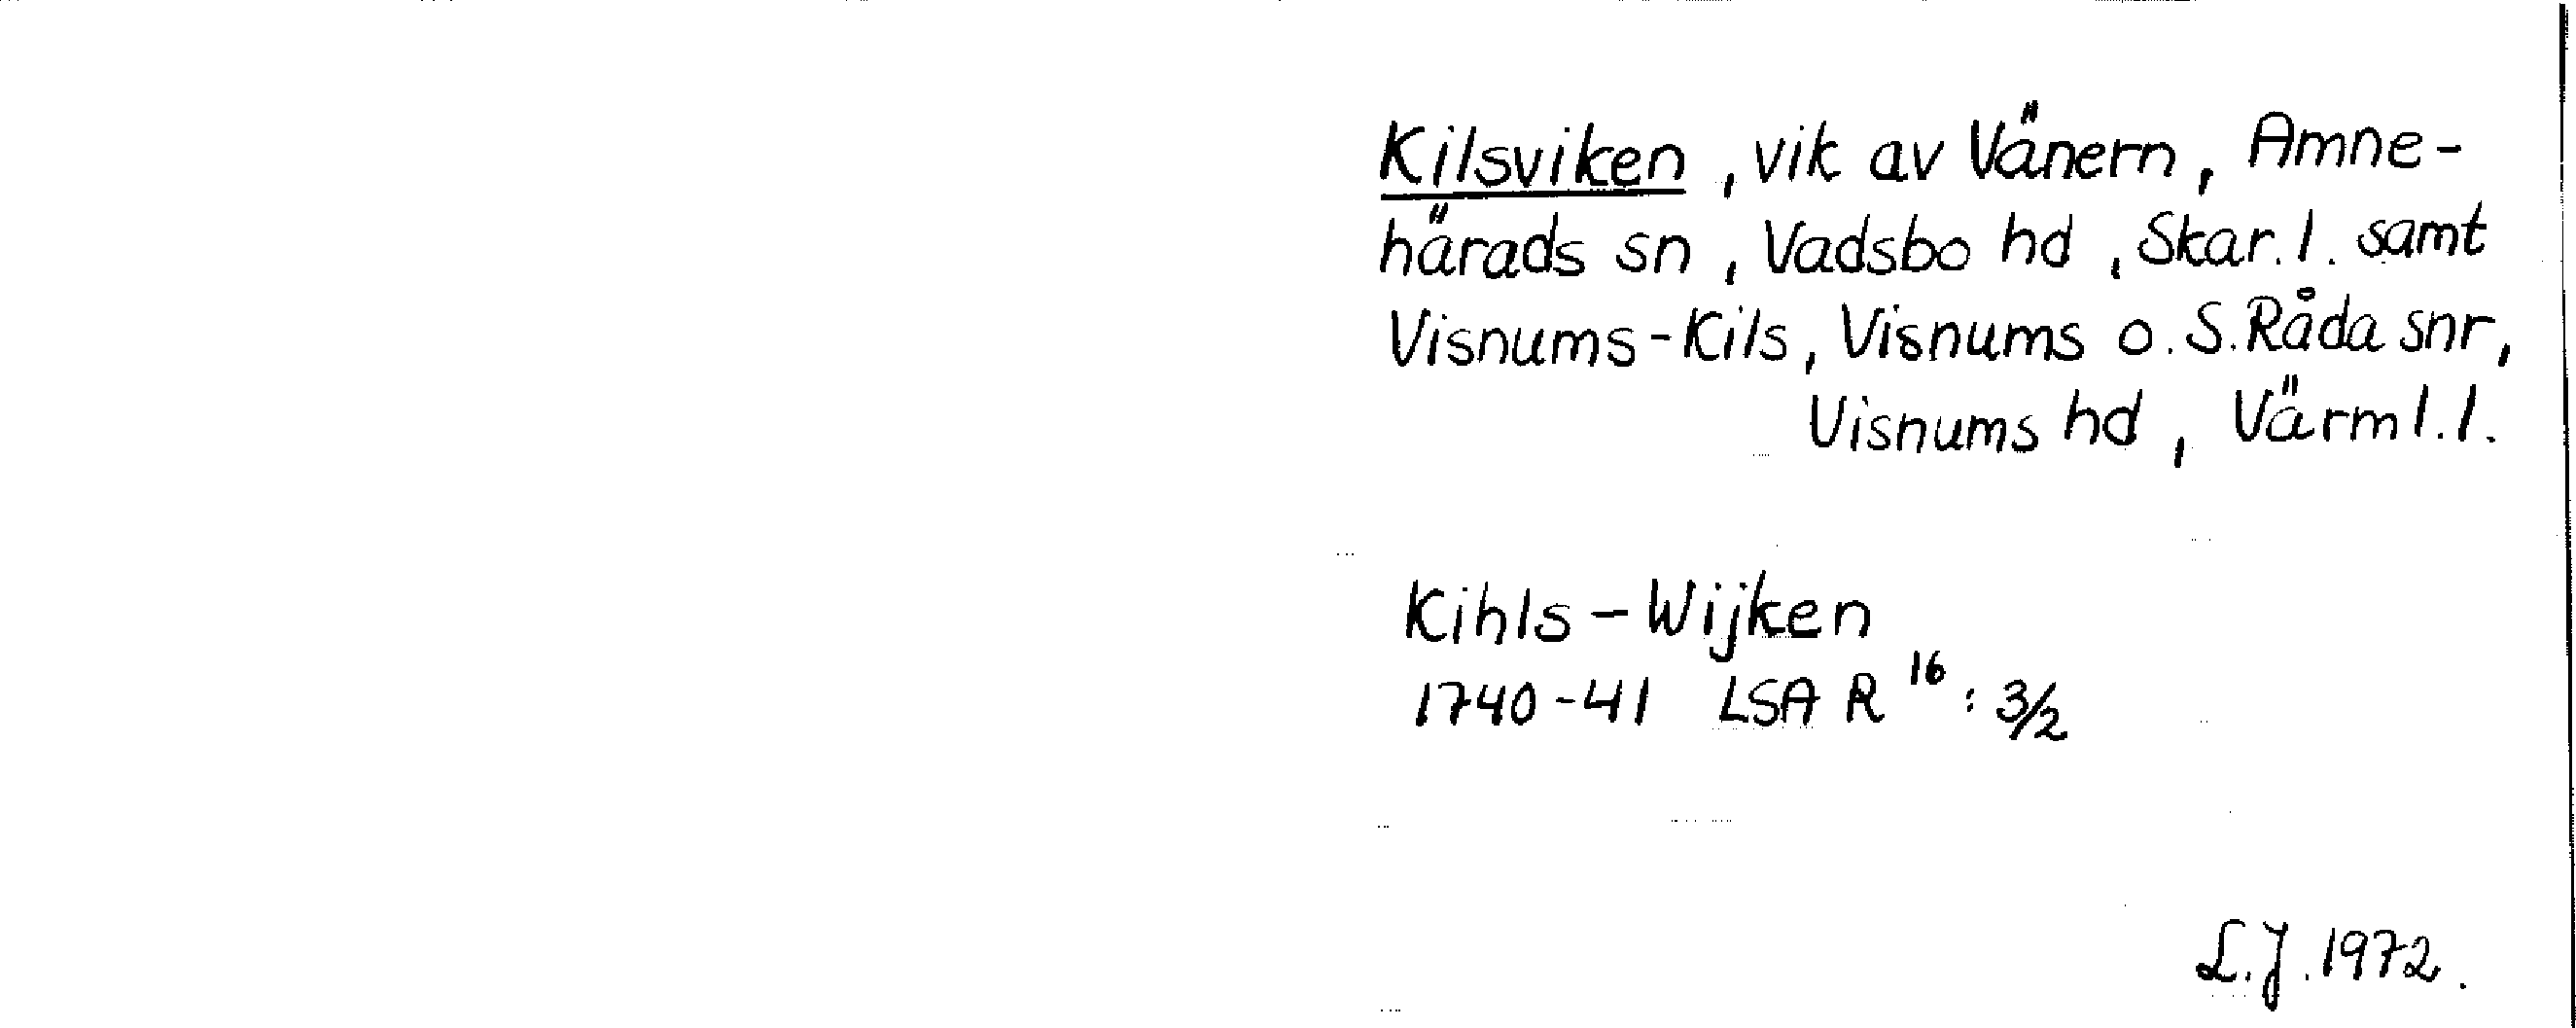 Kilsviken, vik av Vänern, Amne-
härads sn, Vadsbo hd, Skar.l. samt
Visnums-Kils, Visnums o. S. Råda snr,
Visnums hd, Värml.l.
Kihls-Wijken
1740-41 LSA R 16 : 3/2
L.J. 1972.